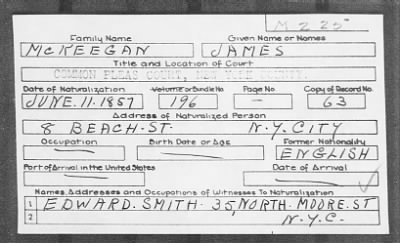 M 2 25
Family Name Given Name or Names
McKEEGAN JAMES
Title and Location of Court
COMMON PLEAS COURT, NEW YORK COUNTY.
Date of Naturalization Volume or Bundle No Page No Copy of Record No.
JUNE.11.1857 196 – 63
Address of Naturalized Person
8 BEACH-ST. N.Y.CITY
Occupation Birth Date or Age Former Nationality
ENGLISH
Port of Arrival in the United States Date of Arrival
Names, Addresses and Occupations of Witnesses To Naturalization
1 EDWARD. SMITH. 35, NORTH. MOORE. ST
2 N.Y.C.